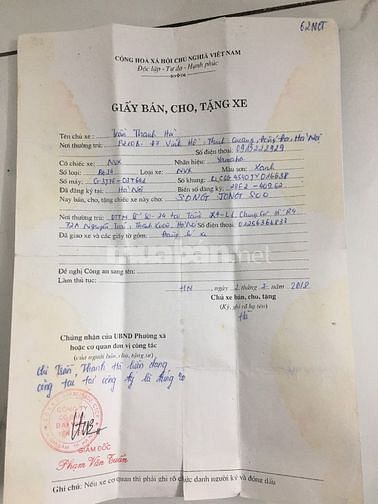 62NCT
CỘNG HÒA XÃ HỘI CHỦ NGHĨA VIỆT NAM
Độc lập - Tự do - Hạnh phúc
GIẤY BÁN, CHO, TẶNG XE
Tên chủ xe: Trần Thanh Hà
Nơi thường trú: Vĩnh Hồ, Thịnh Quang, Đống Đa, Hà Nội
Số điện thoại: 0915222929
Có chiếc xe: NVX Nhãn hiệu: Yamaha
Số loại: Loại xe: NVX Màu sơn: Xanh
Số máy: Số khung:
Đã đăng ký tại: Hà Nội Biển số đăng ký: 29E2 - 409.62
Nay bán, cho, tặng chiếc xe này cho: SONG JONG SOO
Nơi thường trú: Chung cư
72A Nguyễn Trãi, Thanh Xuân, Hà Nội 01256364833
Đã giao xe và các giấy tờ gồm: Đăng ký xe
Đề nghị Công an sang tên:
Làm thủ tục:
HN, ngày 2 tháng 2 năm 2018
Chủ xe bán, cho, tặng
(Ký, ghi rõ họ tên)
Hà
Chứng nhận của UBND Phường xã
hoặc cơ quan đơn vị công tác
(của người bán, cho, tặng xe)
chị Trần Thanh Hà hiện đang
công tác tại công ty là đúng
GIÁM ĐỐC
Phạm Văn Tuấn
Ghi chú: Nếu xe cơ quan thì phải ghi rõ chức danh người ký và đóng dấu
muaban.net